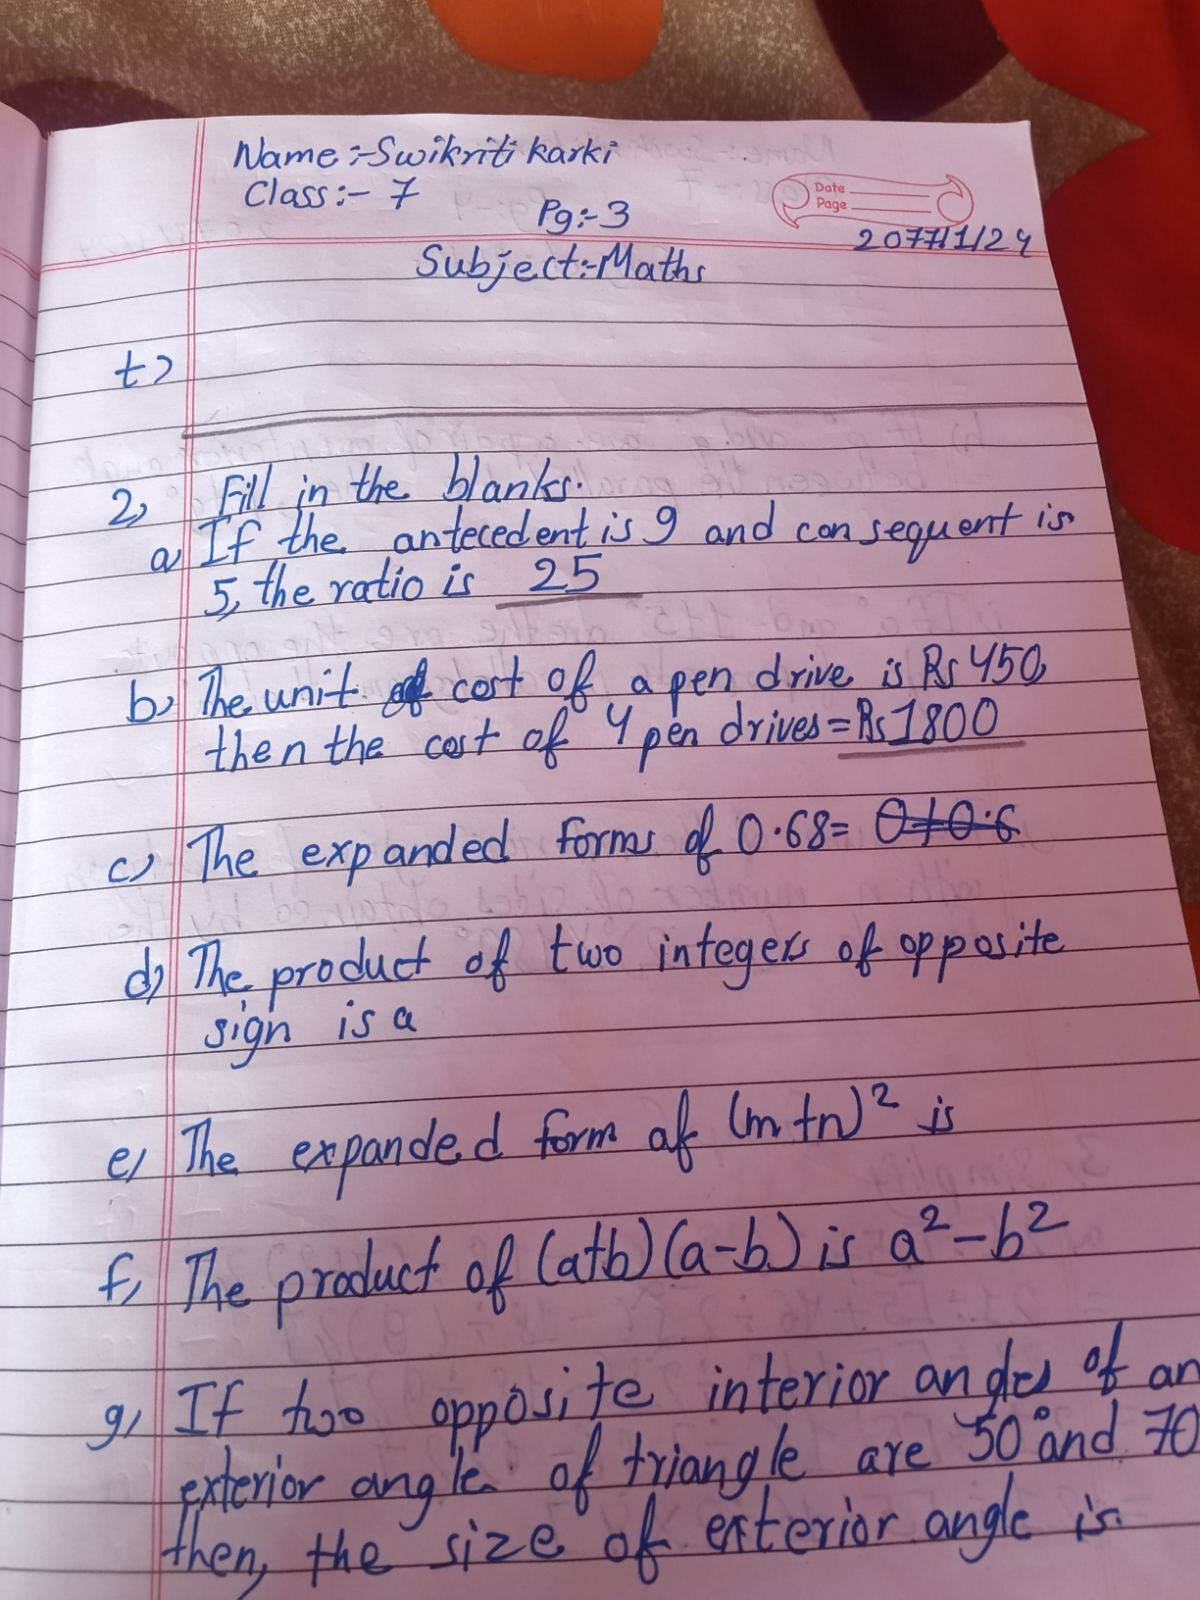 Name :- Swikriti karki
Class :- 7
Pg :- 3
Date
Page
2077/1/24
Subject :- Maths
t)
2) Fill in the blanks.
a) If the antecedent is 9 and consequent is
5, the ratio is 25
b) The unit cost of a pen drive is Rs 450,
then the cost of 4 pen drives = Rs 1800
c) The expanded forms of 0.68 = 0+0.6
d) The product of two integers of opposite
sign is a
e) The expanded form of (m+n)² is
f) The product of (a+b)(a-b) is a²-b²
g) If two opposite interior angles of an
exterior angle of triangle are 50° and 70
then, the size of exterior angle is